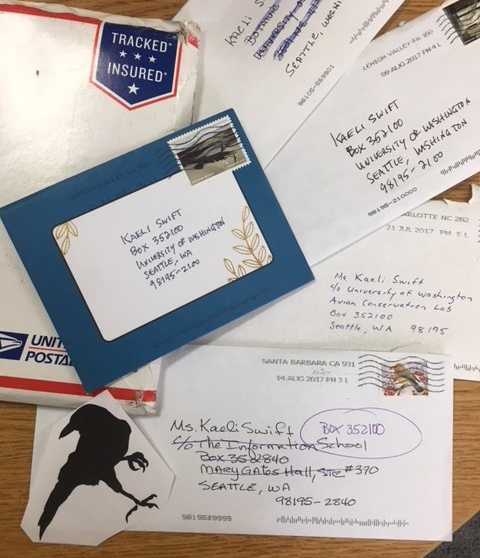 TRACKED
INSURED
UNIT
POSTAL
KAELI S
SEATTLE, WASHIN
98105-569901
LEHIGH VALLEY PA 180
09 AUG 2017 PM 4 L
KAELI SWIFT
BOX 352100
UNIVERSITY OF WASHINGTON
SEATTLE, WASHINGTON
98195-2100
98195-210000
KAELI SWIFT
BOX 352100
UNIVERSITY OF WASHINGTON
SEATTLE, WA
98195-2100
ARLOTTE NC 282
21 JUL 2017 PM 5 L
Ms. Kaeli Swift
c/o University of Washington
Avian Conservation Lab
Box 352100
Seattle, WA 98195
SANTA BARBARA CA 931
14 AUG 2017 PM 3 L
Ms. Kaeli Swift BOX 352100
c/o The Information School
Box 352840
MARY GATES Hall, STE #370
SEATTLE, WA
98195-2840
98195@9999